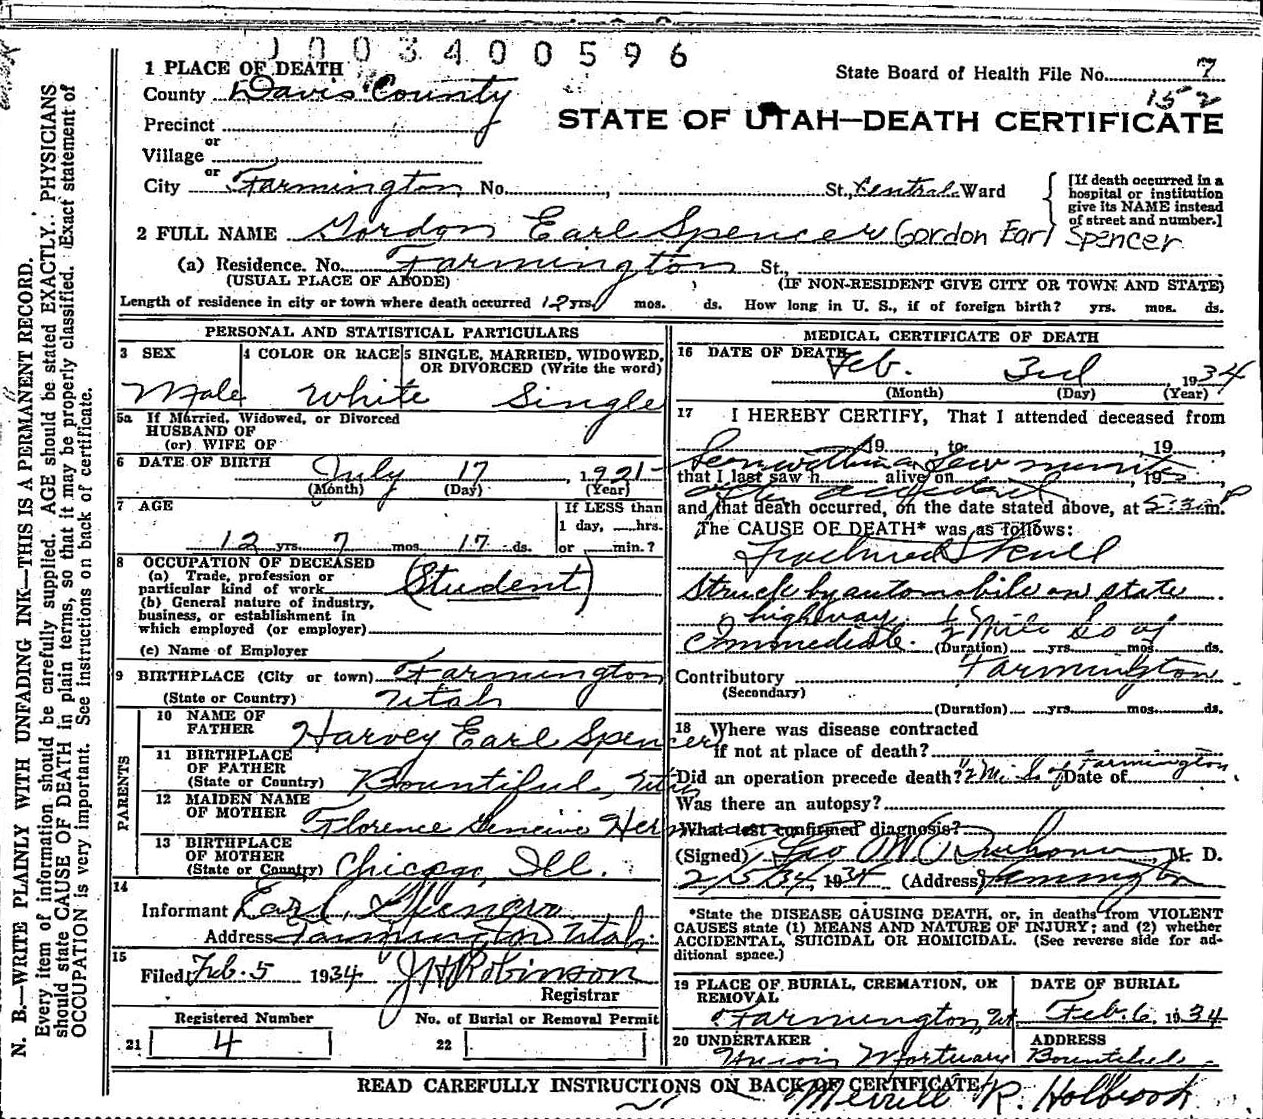 1003400596
1 PLACE OF DEATH
State Board of Health File No. 7
County Davis County
152
STATE OF UTAH—DEATH CERTIFICATE
Precinct
or
Village
or
City Farmington No. St., Central Ward
[If death occurred in a hospital or institution give its NAME instead of street and number.]
2 FULL NAME Gordon Earl Spencer Gordon Earl Spencer
(a) Residence. No. Farmington St.,
(USUAL PLACE OF ABODE) (IF NON-RESIDENT GIVE CITY OR TOWN AND STATE)
Length of residence in city or town where death occurred 12 yrs. mos. ds. How long in U. S., if of foreign birth? yrs. mos. ds.
PERSONAL AND STATISTICAL PARTICULARS
3 SEX 4 COLOR OR RACE 5 SINGLE, MARRIED, WIDOWED, OR DIVORCED (Write the word)
Male White Single
5a If Married, Widowed, or Divorced
HUSBAND OF
(or) WIFE OF
6 DATE OF BIRTH July 17, 1921
(Month) (Day) (Year)
7 AGE If LESS than
1 day, hrs.
12 yrs. 7 mos. 17 ds. or min.?
8 OCCUPATION OF DECEASED
(a) Trade, profession or
particular kind of work (Student)
(b) General nature of industry,
business, or establishment in
which employed (or employer)
(c) Name of Employer
9 BIRTHPLACE (City or town) Farmington
(State or Country) Utah
PARENTS
10 NAME OF FATHER Harvey Earl Spencer
11 BIRTHPLACE OF FATHER (State or Country) Bountiful, Utah
12 MAIDEN NAME OF MOTHER Florence
13 BIRTHPLACE OF MOTHER (State or Country) Chicago, Ill.
14
Informant Earl Spencer
Address Farmington Utah
15
Filed Feb. 5 1934 J H Robinson
Registrar
Registered Number No. of Burial or Removal Permit
21 4 22
MEDICAL CERTIFICATE OF DEATH
16 DATE OF DEATH Feb. 3rd, 1934
(Month) (Day) (Year)
17 I HEREBY CERTIFY, That I attended deceased from
19 , to 19 ,
Seen within a few minutes
that I last saw h alive on , 19
after accident
and that death occurred, on the date stated above, at m.
The CAUSE OF DEATH* was as follows:
Fractured Skull
Struck by automobile on state
highway ½ Mile So of
Immediate (Duration) yrs. mos. ds.
Contributory Farmington
(Secondary)
(Duration) yrs. mos. ds.
18 Where was disease contracted
if not at place of death?
Did an operation precede death? Date of Farmington
Was there an autopsy?
What test confirmed diagnosis?
(Signed) M. D.
2/5/34, 1934 (Address) Farmington
*State the DISEASE CAUSING DEATH, or, in deaths from VIOLENT
CAUSES state (1) MEANS AND NATURE OF INJURY; and (2) whether
ACCIDENTAL, SUICIDAL OR HOMICIDAL. (See reverse side for ad-
ditional space.)
19 PLACE OF BURIAL, CREMATION, OR REMOVAL DATE OF BURIAL
Farmington, Ut Feb. 6, 1934
20 UNDERTAKER ADDRESS
Union Mortuary Bountiful
READ CAREFULLY INSTRUCTIONS ON BACK OF CERTIFICATE
Merrill R. Holbrook
N. B.—WRITE PLAINLY WITH UNFADING INK—THIS IS A PERMANENT RECORD.
Every item of information should be carefully supplied. AGE should be stated EXACTLY. PHYSICIANS
should state CAUSE OF DEATH in plain terms, so that it may be properly classified. Exact statement of
OCCUPATION is very important. See instructions on back of certificate.